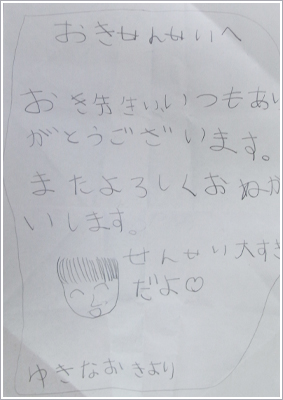 おきせんせいへ
おき先生いつもあり
がとうございます。
またよろしくおねが
いします。
せんせい大すき
だよ♡
ゆきなおきより